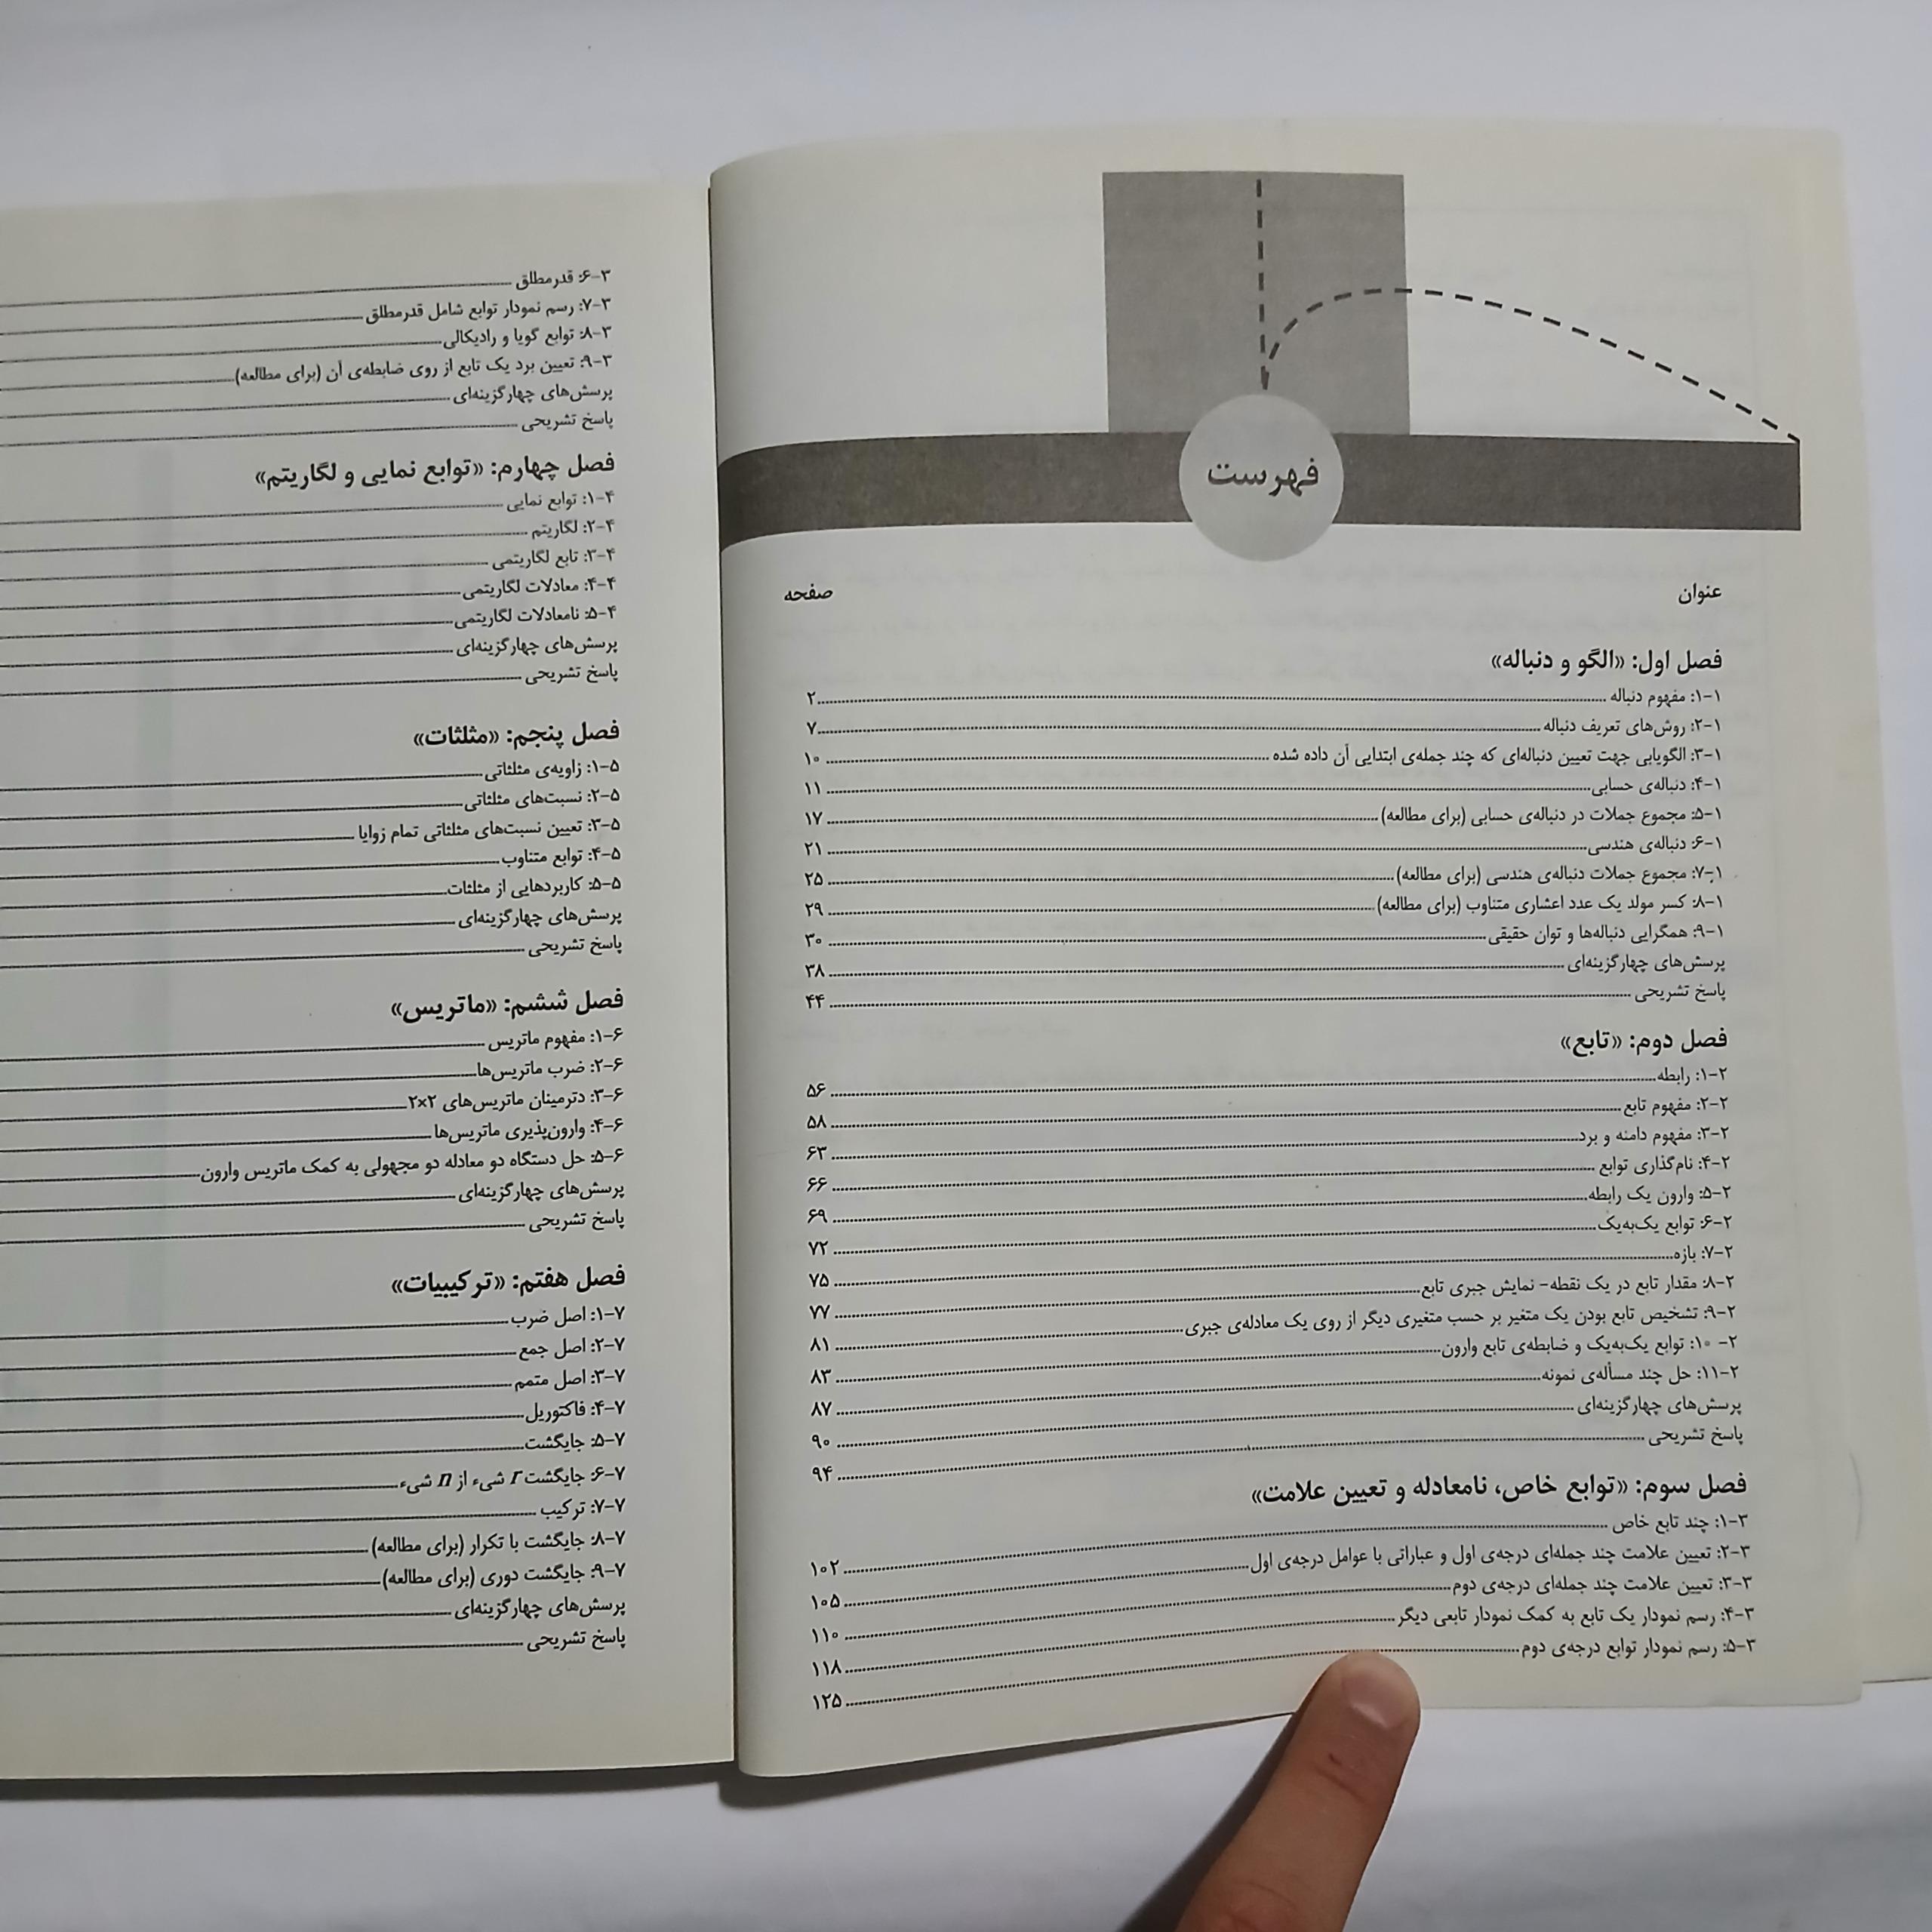 فهرست
عنوان صفحه
فصل اول: «الگو و دنباله»
۱-۱: مفهوم دنباله ۲
۲-۱: روش‌های تعریف دنباله ۷
۳-۱: الگویابی جهت تعیین دنباله‌ای که چند جمله‌ی ابتدایی آن داده شده ۱۰
۴-۱: دنباله‌ی حسابی ۱۱
۵-۱: مجموع جملات در دنباله‌ی حسابی (برای مطالعه) ۱۷
۶-۱: دنباله‌ی هندسی ۲۱
۷-۱: مجموع جملات دنباله‌ی هندسی (برای مطالعه) ۲۵
۸-۱: کسر مولد یک عدد اعشاری متناوب (برای مطالعه) ۲۹
۹-۱: همگرایی دنباله‌ها و توان حقیقی ۳۰
پرسش‌های چهارگزینه‌ای ۳۸
پاسخ تشریحی ۴۴
فصل دوم: «تابع»
۱-۲: رابطه ۵۶
۲-۲: مفهوم تابع ۵۸
۳-۲: مفهوم دامنه و برد ۶۳
۴-۲: نام‌گذاری توابع ۶۶
۵-۲: وارون یک رابطه ۶۹
۶-۲: توابع یک‌به‌یک ۷۲
۷-۲: بازه ۷۵
۸-۲: مقدار تابع در یک نقطه- نمایش جبری تابع ۷۷
۹-۲: تشخیص تابع بودن یک متغیر بر حسب متغیری دیگر از روی یک معادله‌ی جبری ۸۱
۱۰-۲: توابع یک‌به‌یک و ضابطه‌ی تابع وارون ۸۳
۱۱-۲: حل چند مسأله‌ی نمونه ۸۷
پرسش‌های چهارگزینه‌ای ۹۰
پاسخ تشریحی ۹۴
فصل سوم: «توابع خاص، نامعادله و تعیین علامت»
۱-۳: چند تابع خاص ۱۰۲
۲-۳: تعیین علامت چند جمله‌ای درجه‌ی اول و عباراتی با عوامل درجه‌ی اول ۱۰۵
۳-۳: تعیین علامت چند جمله‌ای درجه‌ی دوم ۱۱۰
۴-۳: رسم نمودار یک تابع به کمک نمودار تابعی دیگر ۱۱۸
۵-۳: رسم نمودار توابع درجه‌ی دوم ۱۲۵
۶-۳: قدرمطلق
۷-۳: رسم نمودار توابع شامل قدرمطلق
۸-۳: توابع گویا و رادیکالی
۹-۳: تعیین برد یک تابع از روی ضابطه‌ی آن (برای مطالعه)
پرسش‌های چهارگزینه‌ای
پاسخ تشریحی
فصل چهارم: «توابع نمایی و لگاریتم»
۱-۴: توابع نمایی
۲-۴: لگاریتم
۳-۴: تابع لگاریتمی
۴-۴: معادلات لگاریتمی
۵-۴: نامعادلات لگاریتمی
پرسش‌های چهارگزینه‌ای
پاسخ تشریحی
فصل پنجم: «مثلثات»
۱-۵: زاویه‌ی مثلثاتی
۲-۵: نسبت‌های مثلثاتی
۳-۵: تعیین نسبت‌های مثلثاتی تمام زوایا
۴-۵: توابع متناوب
۵-۵: کاربردهایی از مثلثات
پرسش‌های چهارگزینه‌ای
پاسخ تشریحی
فصل ششم: «ماتریس»
۱-۶: مفهوم ماتریس
۲-۶: ضرب ماتریس‌ها
۳-۶: دترمینان ماتریس‌های ۲×۲
۴-۶: وارون‌پذیری ماتریس‌ها
۵-۶: حل دستگاه دو معادله دو مجهولی به کمک ماتریس وارون
پرسش‌های چهارگزینه‌ای
پاسخ تشریحی
فصل هفتم: «ترکیبیات»
۱-۷: اصل ضرب
۲-۷: اصل جمع
۳-۷: اصل متمم
۴-۷: فاکتوریل
۵-۷: جایگشت
۶-۷: جایگشت r شیء از n شیء
۷-۷: ترکیب
۸-۷: جایگشت با تکرار (برای مطالعه)
۹-۷: جایگشت دوری (برای مطالعه)
پرسش‌های چهارگزینه‌ای
پاسخ تشریحی